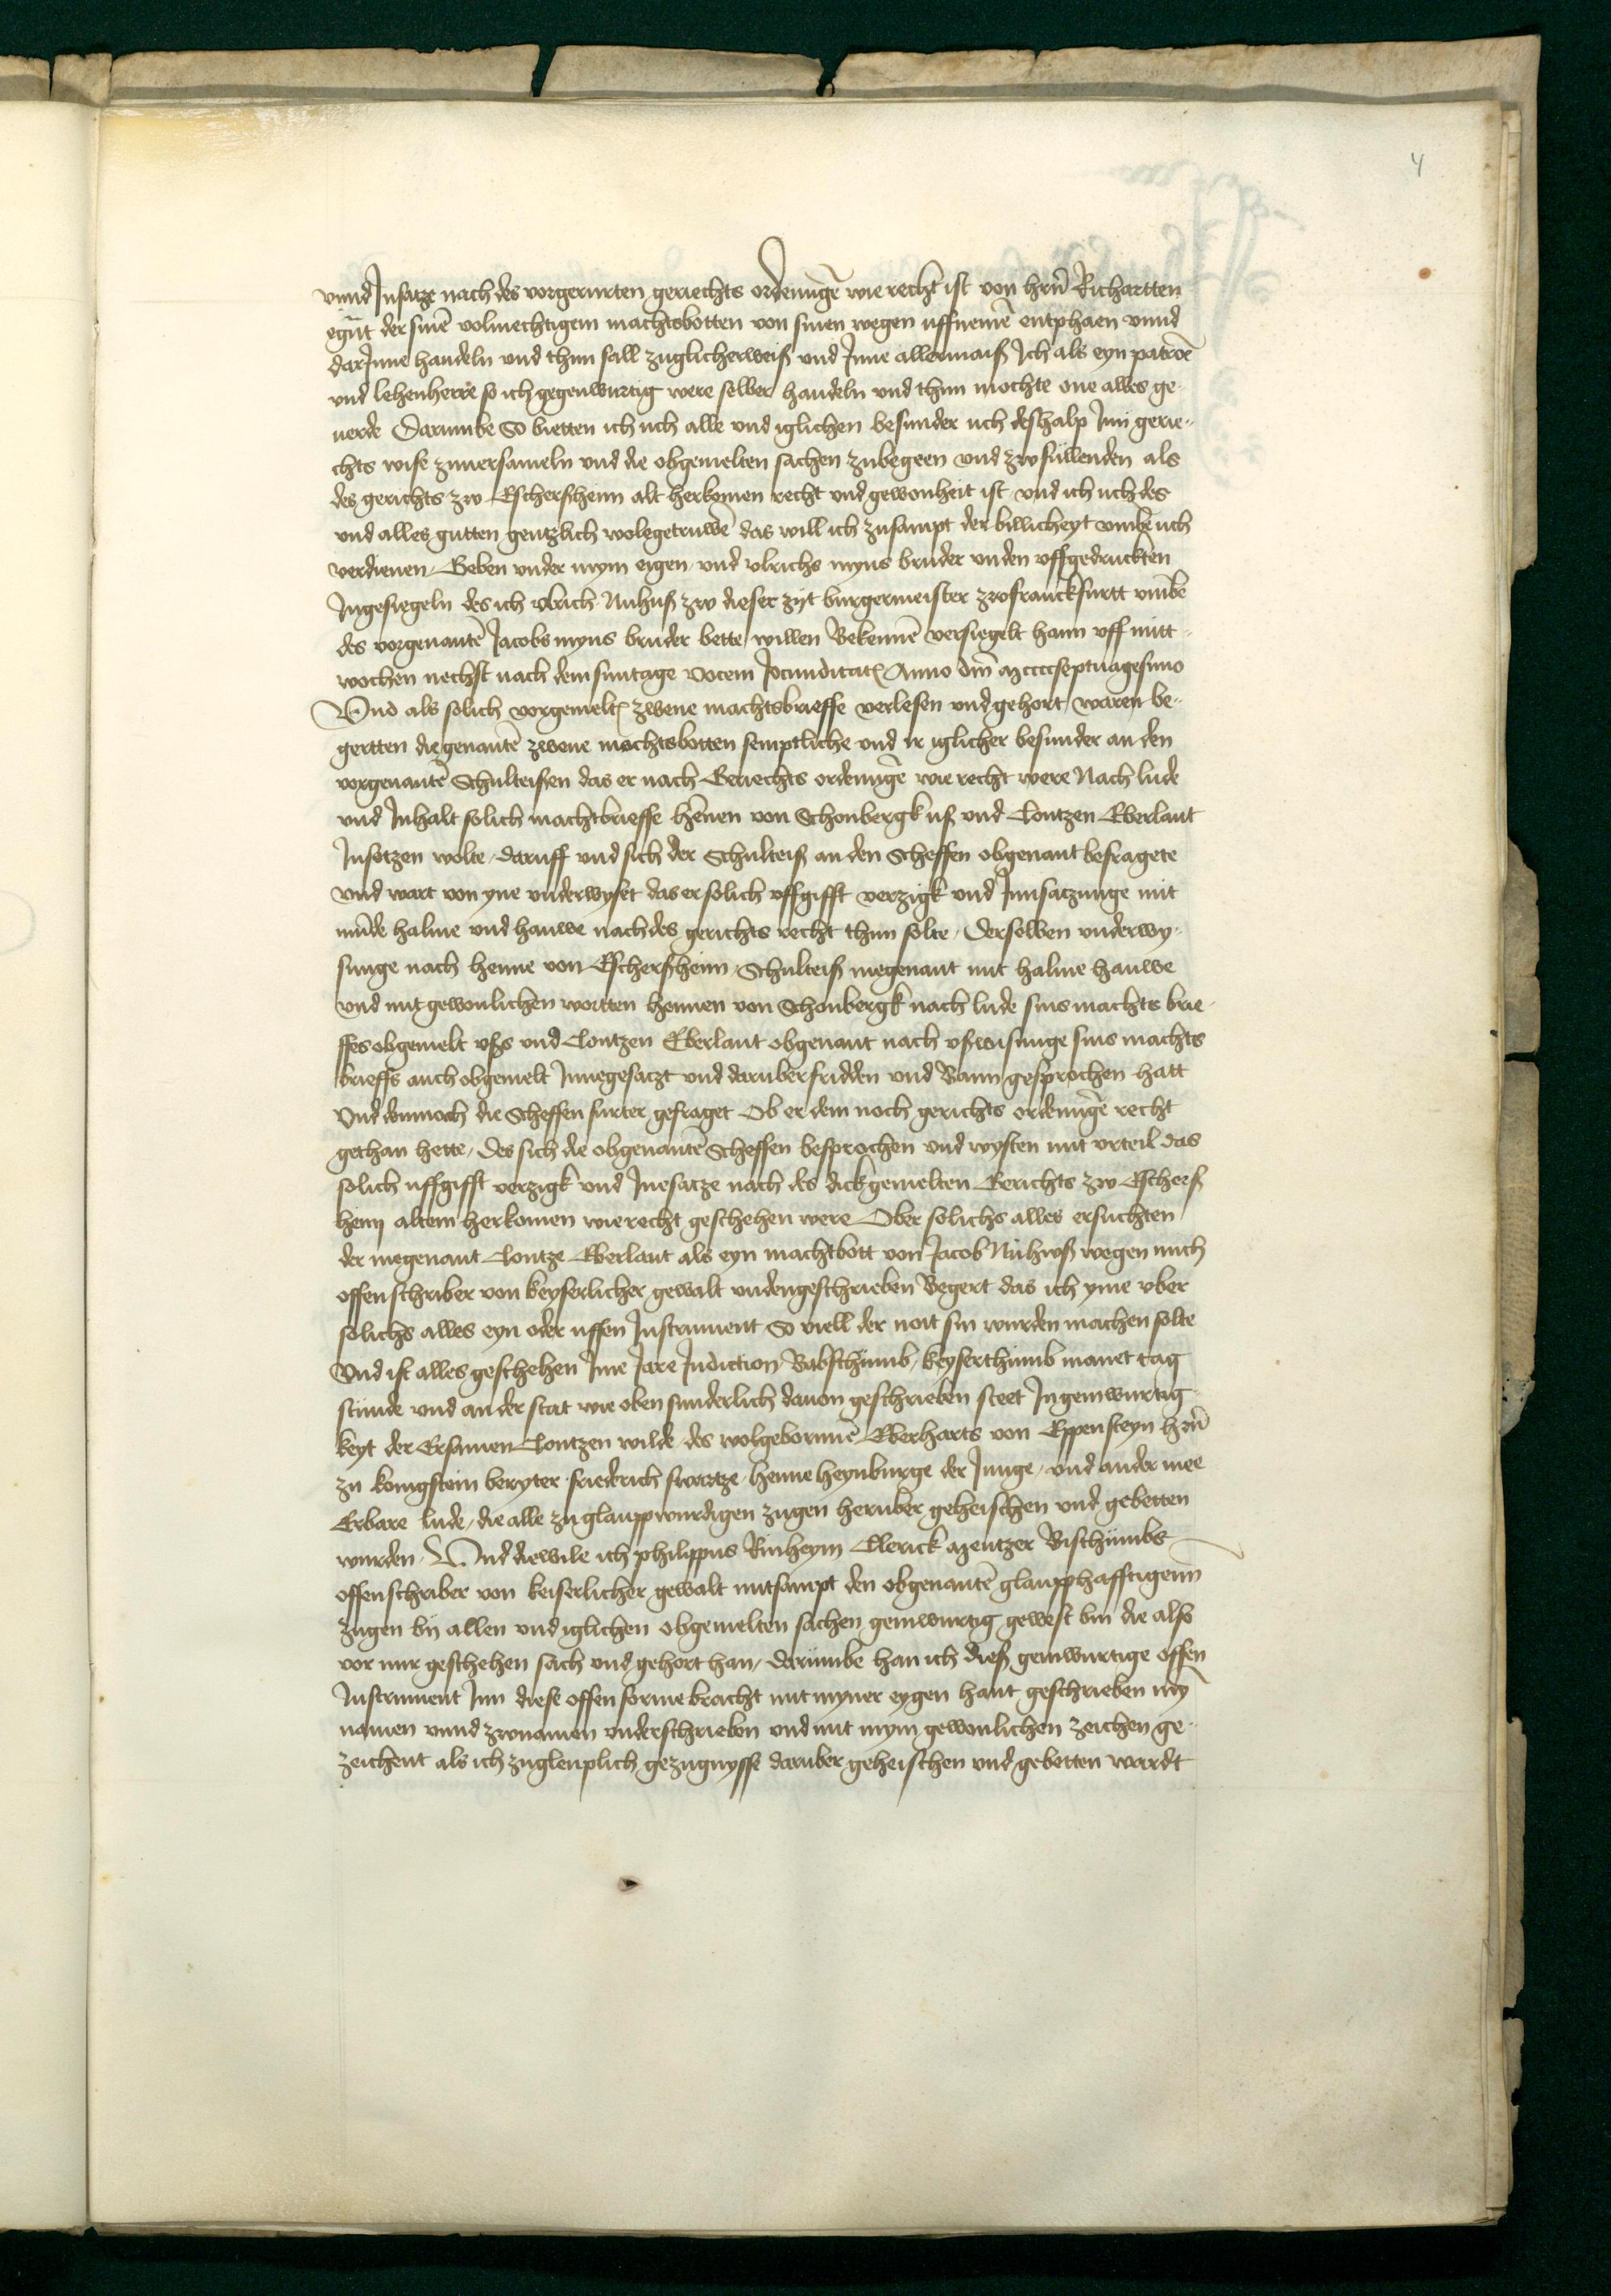 4
vnnd Insatze nach des vorgerurten geriechts ordenu̅ge̅ wie recht ist von hrn̅ Richartten
egn̅t der sine̅ volmechtigem machtsbotten von sinen wegen uffneme̅ entphaen vnnd
darInne handeln und thun sall zuglicherweiß und Inne allermaiß Ich als eyn patro̅
und lehenherre so ich gegenwurtig were selber handeln und thun mochte one alles ge-
uerde Darumbe So bietten ich uch alle und iglichen besunder uch deshalp Inn gerie-
chts wise zuuersameln und die obgemelten sachen zubegeen und zwfullenden als
des gerichts zw Eschersheim alt herkomen recht und gewonheit ist und ich uch des
und alles gutten gentzlich wolegetruwe̅ das will ich zusampt der billicheyt vmbe uch
verdienen Geben under mym eigen und vlrichs myns bruder unden vffgedruckten
Ingesiegeln des ich vlrich Nuhuß zw dieser zijt burgermeister zwfranckfurtt vmbe
des vorgenante̅ Jacobs myns bruder bette willen Bekenne̅ versiegelt hann vff mitt-
wochen nechst nach dem suntage vocem Jocunditat Anno dm̅ Mccccseptuagesimo
Vnd als solich vorgemelt zwene machtsbrieffe verlesen und gehort waren be-
gertten die genante̅ zwene machtsbotten semptliche und ir iglicher besunder an den
vorgenante̅ Schulteißen das er nach Geriechts ordenu̅ge̅ wie recht were Nach lude
und Inhalt solich machtbrieffe he̅nen von Schonbergk uß und Contzen Eberlant
Insetzen wolte daruff und sich der Schulteiß an den Scheffen obgenant befragete
und wart von yne underwyset das er solich vffgifft verzigk und Innsatzunge mit
mu̅de halme und hanwe nach des gerichts recht thun solte Derselben underwy-
sunge nach Henne von Eschersheim Schulteiß megenant mit halme hanwe
und mit gewonlichen wortten hennen von Schonbergk nach lude sins machts brie-
ffes obgemelt vßs und Contzen Eberlant obgenant nach vßwisunge sins machts
brieffs auch obgemelt Innegesatzt und daruber fridden und Bann gesprochen hatt
Und dennoch die Scheffen furter gefraget Ob er dem noch gerichts ordenu̅ge̅ recht
gethan hette des sich die obgenante̅ Scheffen besprochen und wysten mit urteil das
solich uffgifft verzigk und Inesatze nach des dickgemelten Gerichts zw Eschers
heim altem herkomen wie recht geschehen were Ober solichs alles ersuchten
der megenant Contze Eberlant als eyn machtbott von Jacob Nuhuß wegen mich
offenschriber von keyserlicher gewalt undengeschrieben Begert das ich yme vber
solichs alles eyn oder uffen Instrument So viell der noit sin wurden machen solte
Und ist alles geschehen Ime Jare Indiction Babsthumb keyserthumb manet tag
stunde und an der stat wie oben sunderlich dauon geschrieben steet In geinwurtig-
keyt der Ersamen Contzen wilde des wolgeborunne̅ Eberharts von Eppensteyn hrn̅
zu konigstein beryter friederich swartze henne heynburge der Junge und ander mee
Erbare lude die alle zu glauppwurdigen zugen heruber geheischen und gebetten
wurden Und diewile ich philippus Rinheym Clerick Mentzer Bisthumbs
offenschriber von keiserlicher gewalt mitsampt den obgenante̅ glaupphafftigenn
zugen by allen und iglichen obgemelten sachen geinwurtig gewest bin die also
vor mir geschehen sach und gehort han darumbe han ich dieß geinwurtige offen
Instrument Inn diese offen forme bracht mit myner eygen hant geschrieben my̅
namen vnnd zwnamen underschrieben und mit mym gewonlichen zeichen ge-
zeichent als ich zu gleuplich gezugnysse daruber geheischen und gebetten wardt